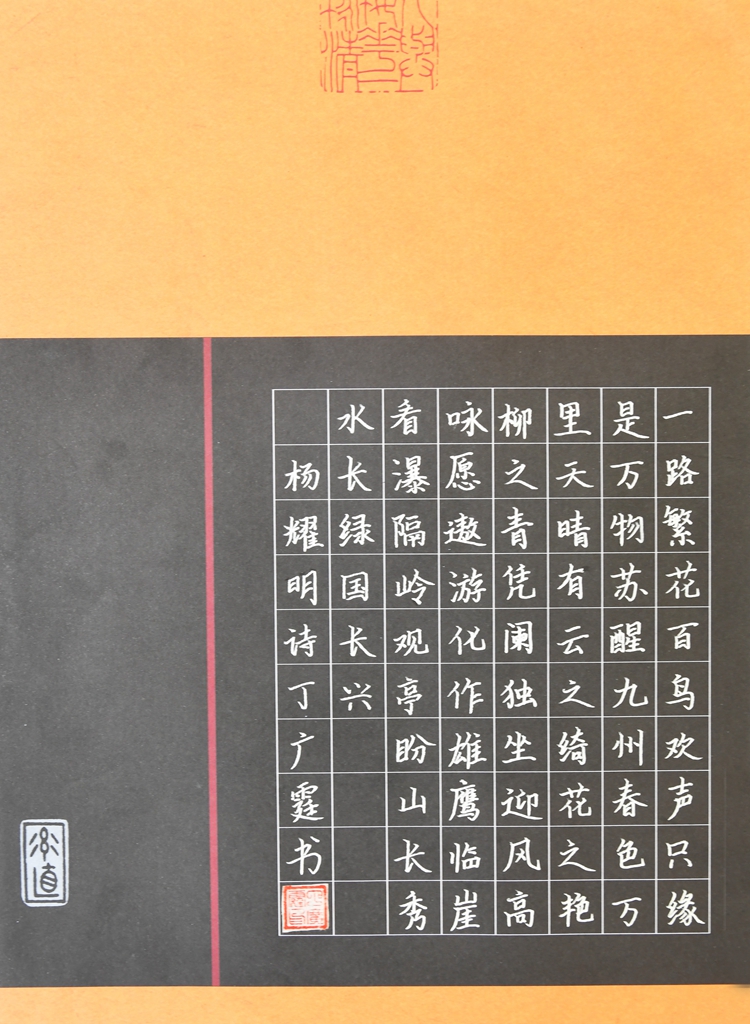 一路繁花百鸟欢声只缘
是万物苏醒九州春色万
里天晴有云之绮花之艳
柳之青凭阑独坐迎风高
咏愿遨游化作雄鹰临崖
看瀑隔岭观亭盼山长秀
水长绿国长兴
杨耀明诗丁广霆书